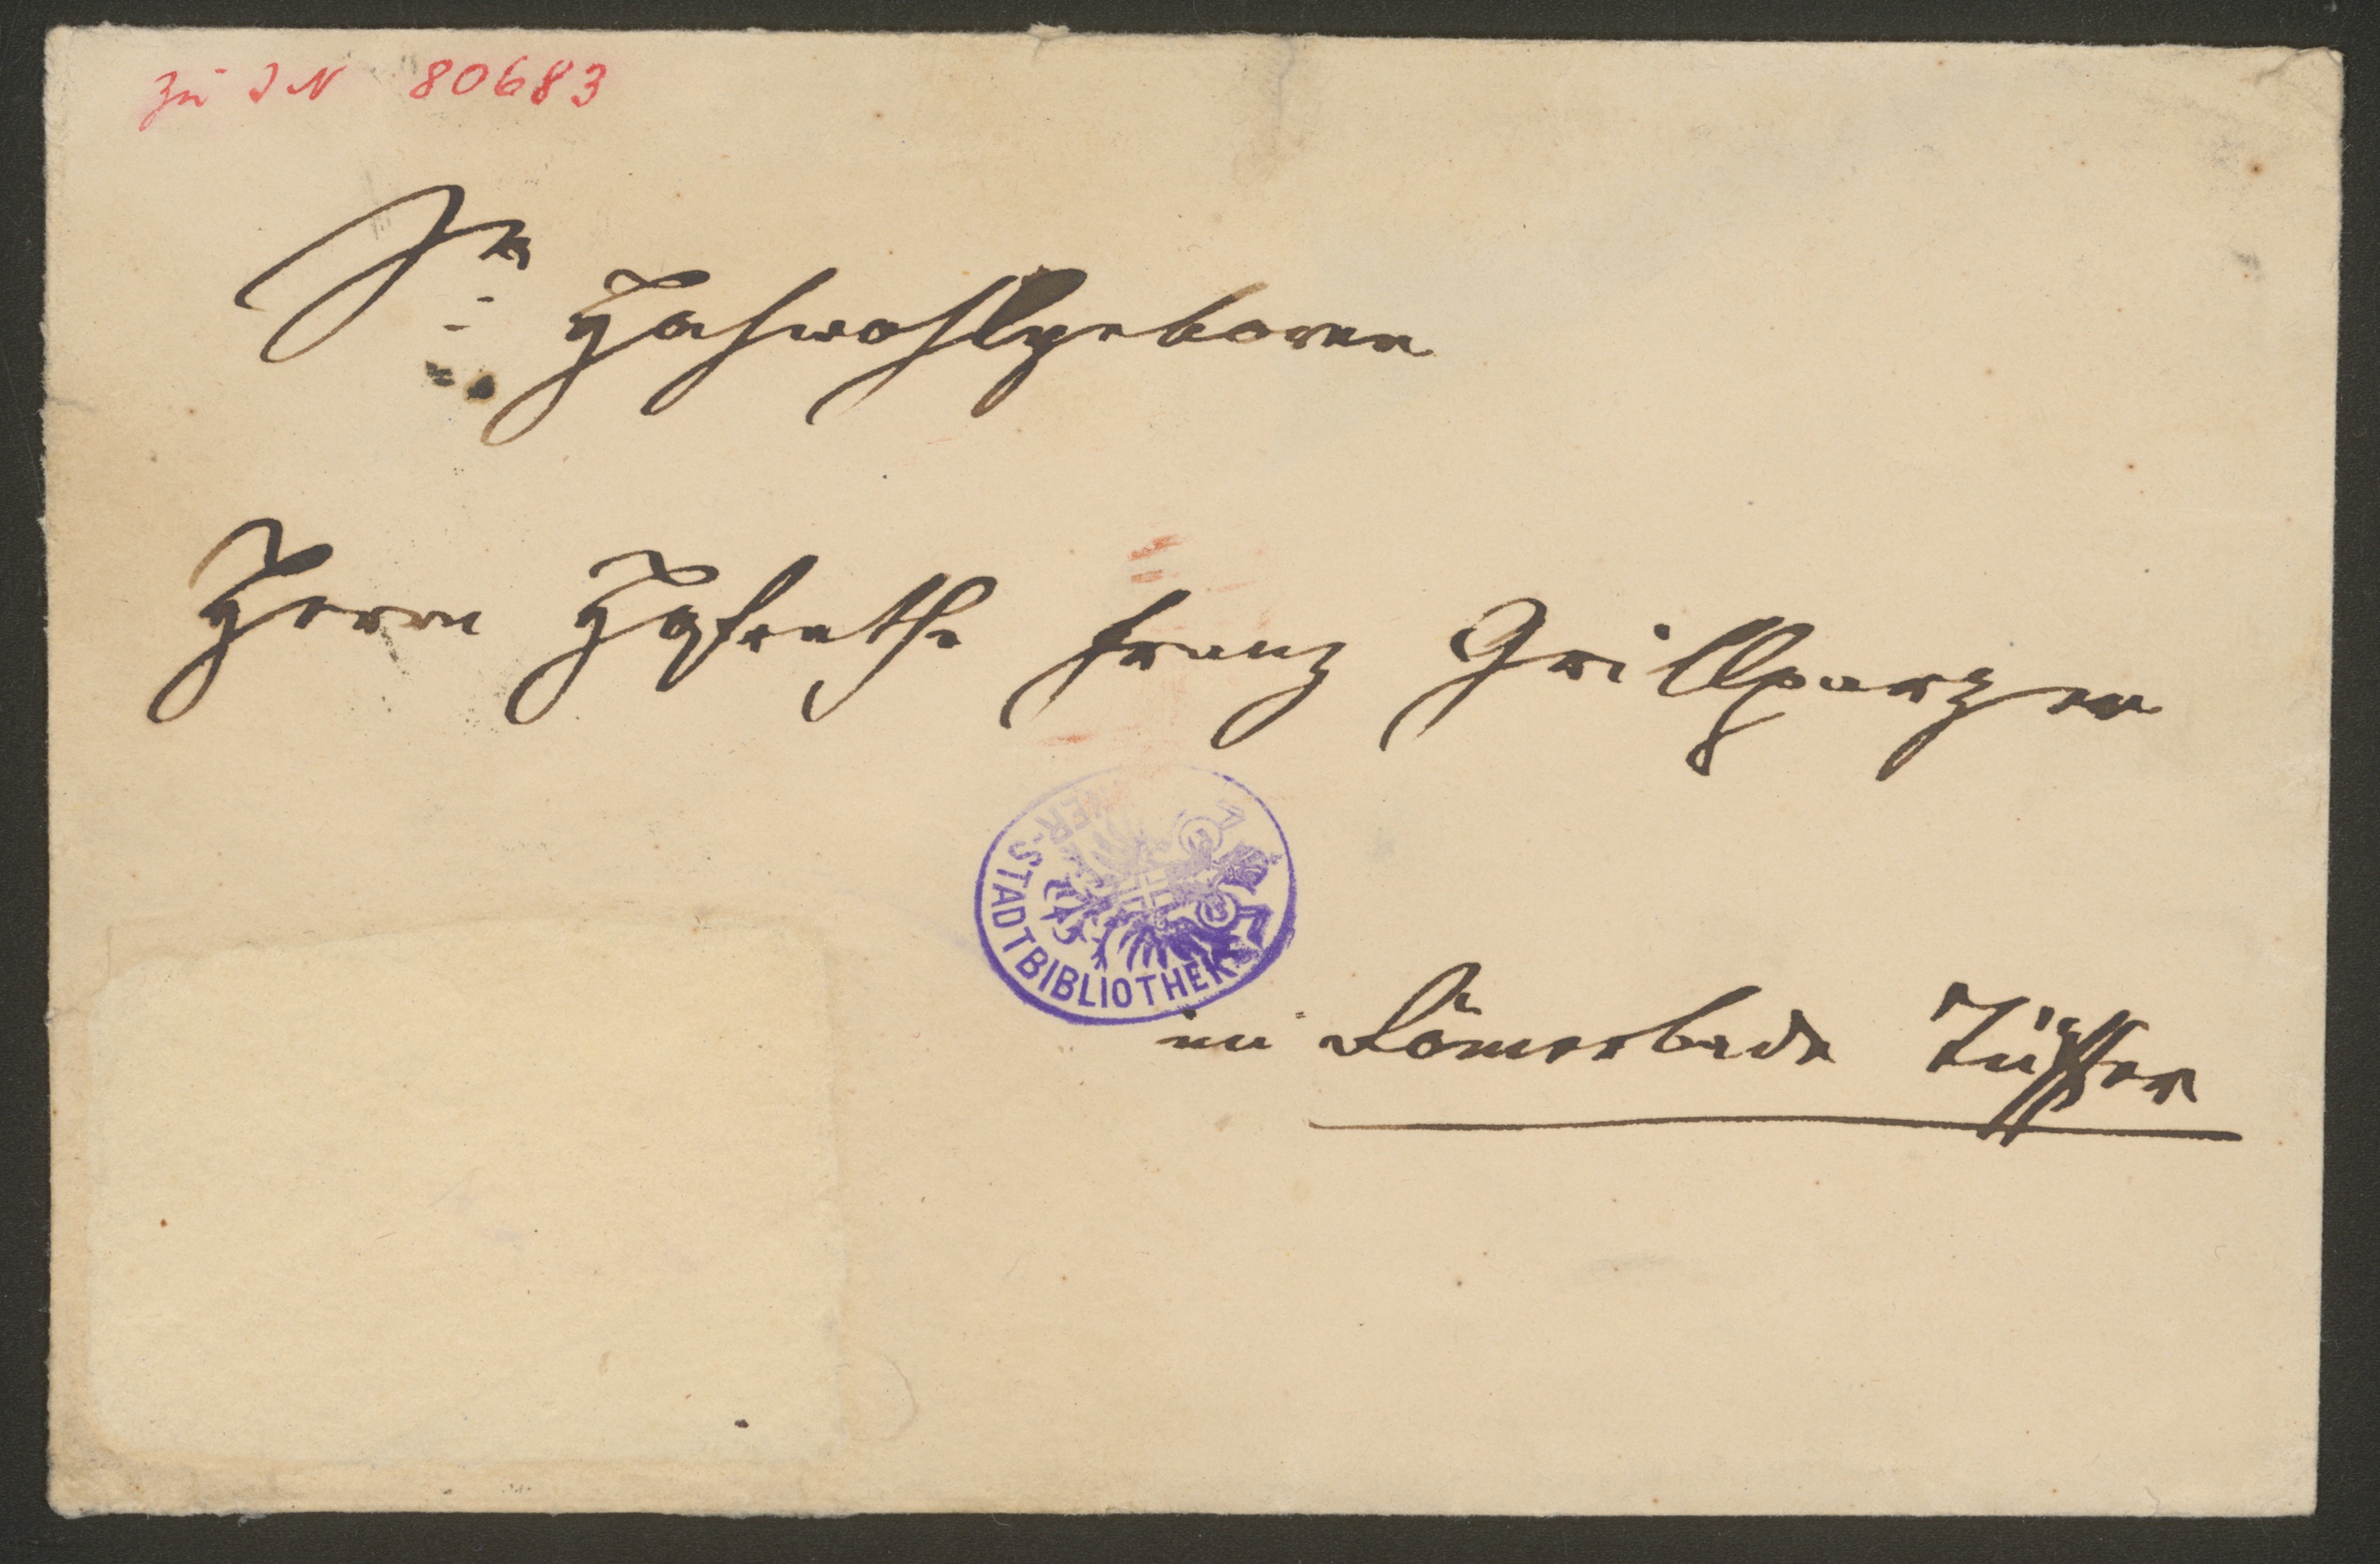 Zu IN 80683
Sr Hochwohlgeboren
Herrn Hofrathe Franz Grillparzer
WIENER STADTBIBLIOTHEK
im Römerbade Tüffer